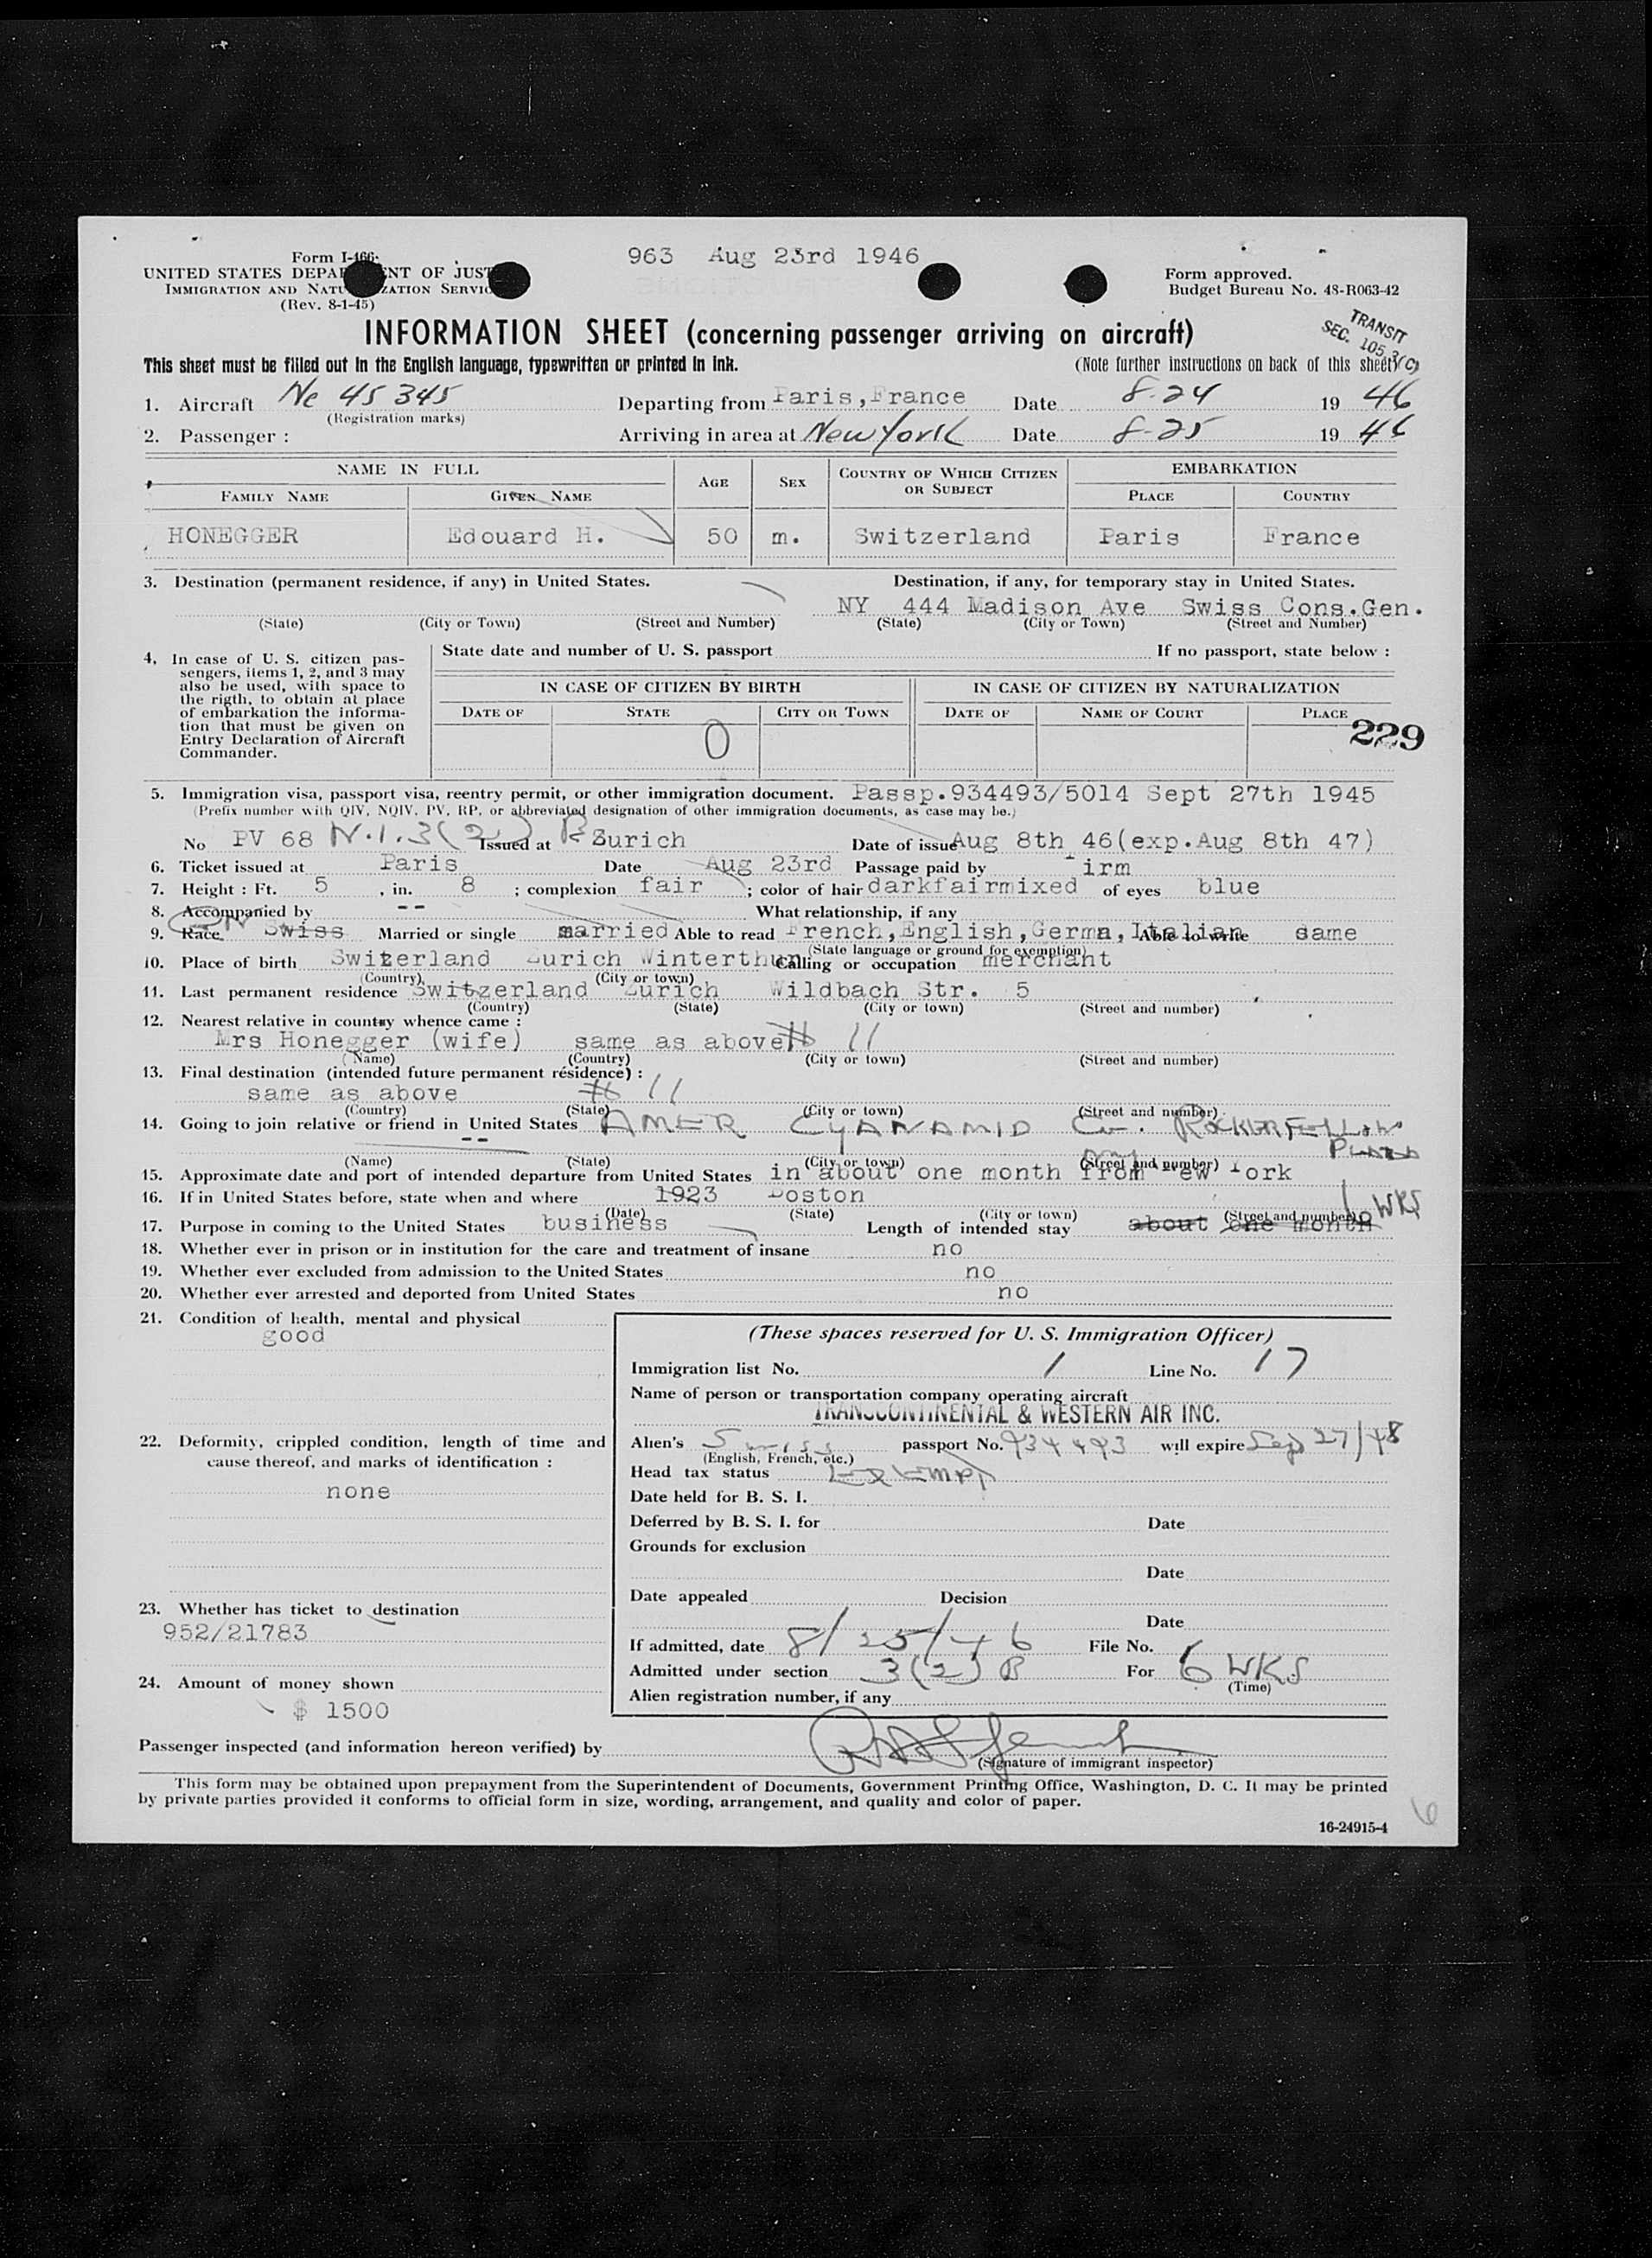 Form I-466
963 Aug 23rd 1946
UNITED STATES DEPARTMENT OF JUSTICE
IMMIGRATION AND NATURALIZATION SERVICE
(Rev. 8-1-45)
Form approved.
Budget Bureau No. 43-R063-42
INFORMATION SHEET (concerning passenger arriving on aircraft)
TRANSIT
SEC. 105.3(C)
This sheet must be filled out in the English language, typewritten or printed in ink.
(Note further instructions on back of this sheet)
1. Aircraft Nc 45345 Departing from Paris,France Date 8-24 19 46
(Registration marks)
2. Passenger : Arriving in area at New York Date 8-25 19 46
NAME IN FULL AGE SEX COUNTRY OF WHICH CITIZEN OR SUBJECT EMBARKATION
FAMILY NAME GIVEN NAME PLACE COUNTRY
HONEGGER Edouard H. 50 m. Switzerland Paris France
3. Destination (permanent residence, if any) in United States. Destination, if any, for temporary stay in United States.
NY 444 Madison Ave Swiss Cons.Gen.
(State) (City or Town) (Street and Number) (State) (City or Town) (Street and Number)
4. In case of U. S. citizen pas-
sengers, items 1, 2, and 3 may
also be used, with space to
the rigth, to obtain at place
of embarkation the informa-
tion that must be given on
Entry Declaration of Aircraft
Commander.
State date and number of U. S. passport If no passport, state below :
IN CASE OF CITIZEN BY BIRTH IN CASE OF CITIZEN BY NATURALIZATION
DATE OF STATE CITY OR TOWN DATE OF NAME OF COURT PLACE
0
229
5. Immigration visa, passport visa, reentry permit, or other immigration document. Passp.934493/5014 Sept 27th 1945
(Prefix number with QIV, NQIV, PV, RP, or abbreviated designation of other immigration documents, as case may be.)
No PV 68 N.I.3(2) B Issued at Zurich Date of issue Aug 8th 46(exp.Aug 8th 47)
6. Ticket issued at Paris Date Aug 23rd Passage paid by irm
7. Height : Ft. 5 , in. 8 ; complexion fair ; color of hair darkfairmixed of eyes blue
8. Accompanied by -- What relationship, if any
9. Race Swiss Married or single married Able to read French,English,Germn,Italian Able to write same
(State language or ground for exemption)
10. Place of birth Switerland Zurich Winterthur Calling or occupation merchant
(Country) (City or town)
11. Last permanent residence Switzerland Zurich Wildbach Str. 5
(Country) (State) (City or town) (Street and number)
12. Nearest relative in country whence came :
Mrs Honegger (wife) same as above # 11
(Name) (Country) (City or town) (Street and number)
13. Final destination (intended future permanent résidence) :
same as above # 11
(Country) (State) (City or town) (Street and number)
14. Going to join relative or friend in United States AMER CYANAMID Co. ROCKERFELLOW
-- PLAZA
(Name) (State) (City or town) (Street and number)
15. Approximate date and port of intended departure from United States in about one month from New York
16. If in United States before, state when and where 1923 Boston
(Date) (State) (City or town) (Street and number)
17. Purpose in coming to the United States business Length of intended stay about one month 6 WKS
18. Whether ever in prison or in institution for the care and treatment of insane no
19. Whether ever excluded from admission to the United States no
20. Whether ever arrested and deported from United States no
21. Condition of health, mental and physical
good
22. Deformity, crippled condition, length of time and
cause thereof, and marks of identification :
none
23. Whether has ticket to destination
952/21783
24. Amount of money shown
$ 1500
(These spaces reserved for U. S. Immigration Officer)
Immigration list No. 1 Line No. 17
Name of person or transportation company operating aircraft
TRANSCONTINENTAL & WESTERN AIR INC.
Alien's Swiss passport No. 934493 will expire Sep 27/48
(English, French, etc.)
Head tax status Exempt
Date held for B. S. I.
Deferred by B. S. I. for Date
Grounds for exclusion
Date
Date appealed Decision
Date
If admitted, date 8/25/46 File No.
Admitted under section 3(2) B For 6 WKS
(Time)
Alien registration number, if any
Passenger inspected (and information hereon verified) by
(Signature of immigrant inspector)
This form may be obtained upon prepayment from the Superintendent of Documents, Government Printing Office, Washington, D. C. It may be printed
by private parties provided it conforms to official form in size, wording, arrangement, and quality and color of paper.
16-24915-4
6